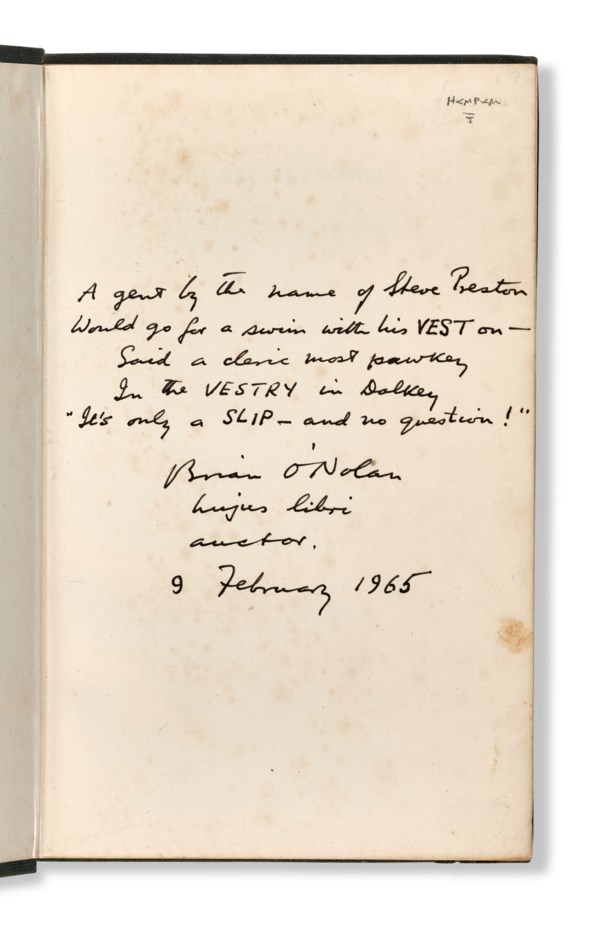 A gent by the name of Steve Preston
Would go for a swim with his VEST on —
Said a cleric most pawkey
In the VESTRY in Dalkey
"It's only a SLIP — and no question!"
Brian O'Nolan
hujus libri
auctor.
9 February 1965